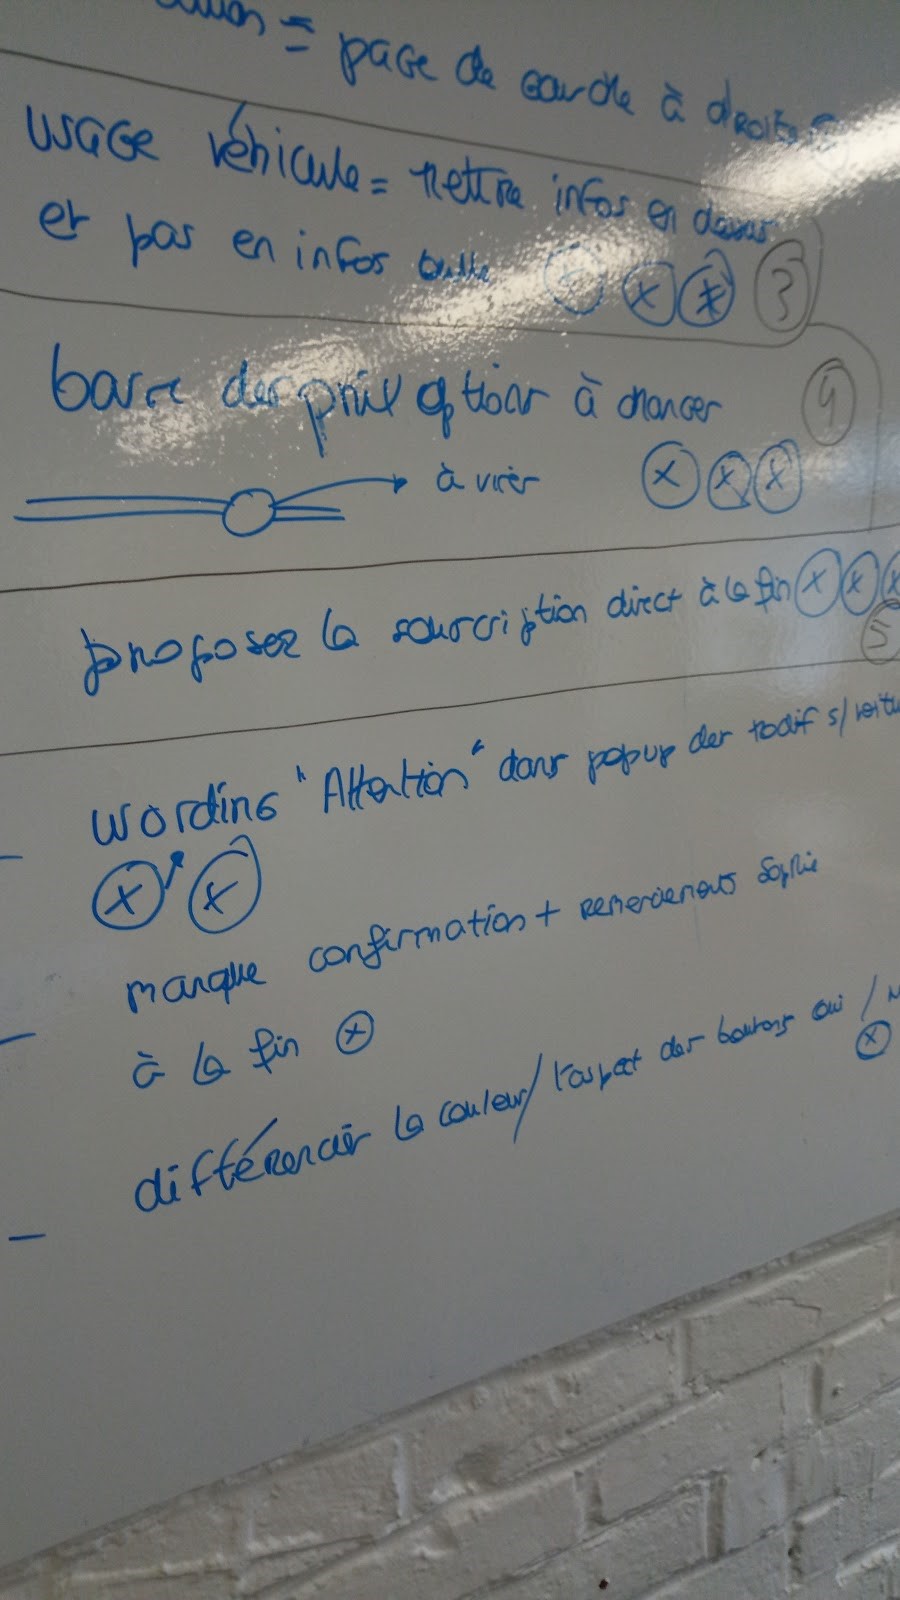 = page de garde à droite
usage véhicule = mettre infos en dessous
et pas en infos bulle ⊗ ⊗ ⊗ ③
barre des prix options à changer ④
à virer ⊗ ⊗ ⊗
proposer la souscription direct à la fin ⊗ ⊗ ⊗
⑤
- wording "Attention" dans popup des modif s/
⊗ ⊗
- manque confirmation + remerciements Sophie
à la fin ⊗
- différencier la couleur/l'aspect des boutons oui /
⊗